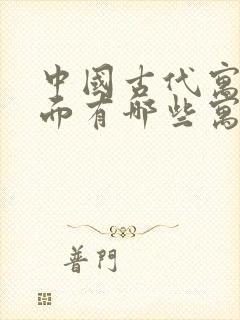 中國古代寓
而有哪些寓
普門